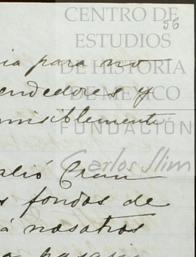 CENTRO DE
56
ESTUDIOS
DE HISTORIA
DE MEXICO
FUNDACIÓN
Carlos Slim
para no
endedores y
nsiblemente
alió Cran
fondos de
á nosotros